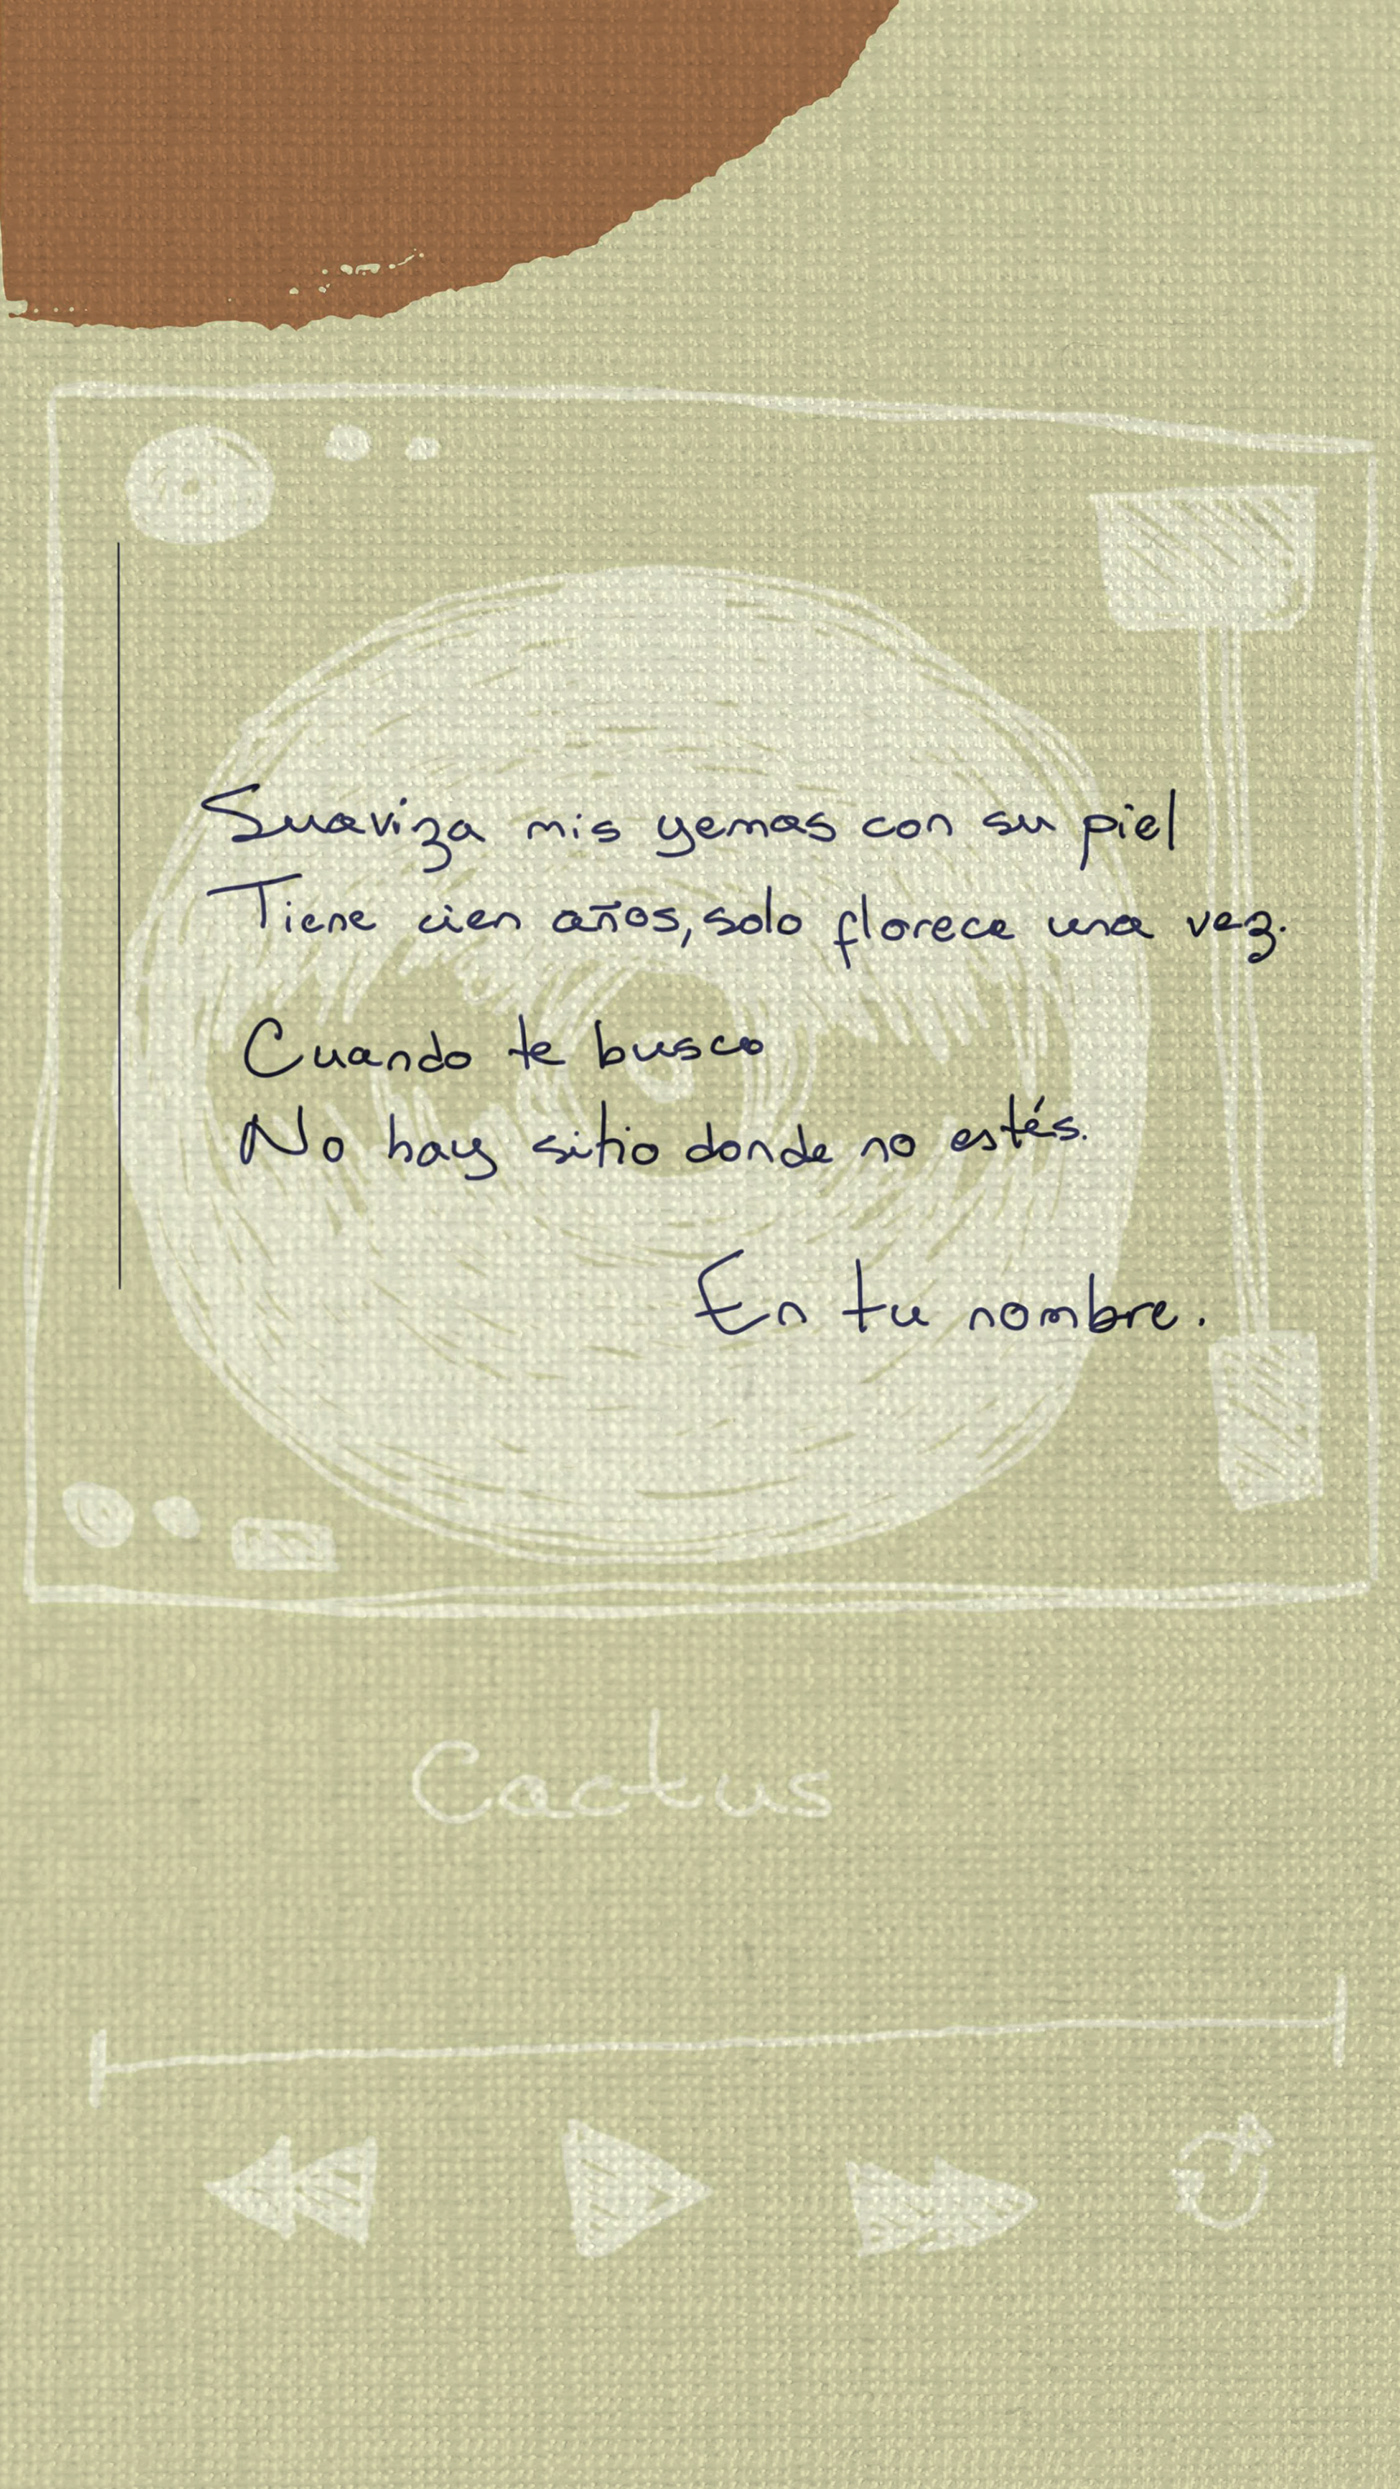 Suaviza mis yemas con su piel
Tiene cien años, solo florece una vez.
Cuando te busco
No hay sitio donde no estés.
En tu nombre.
Cactus